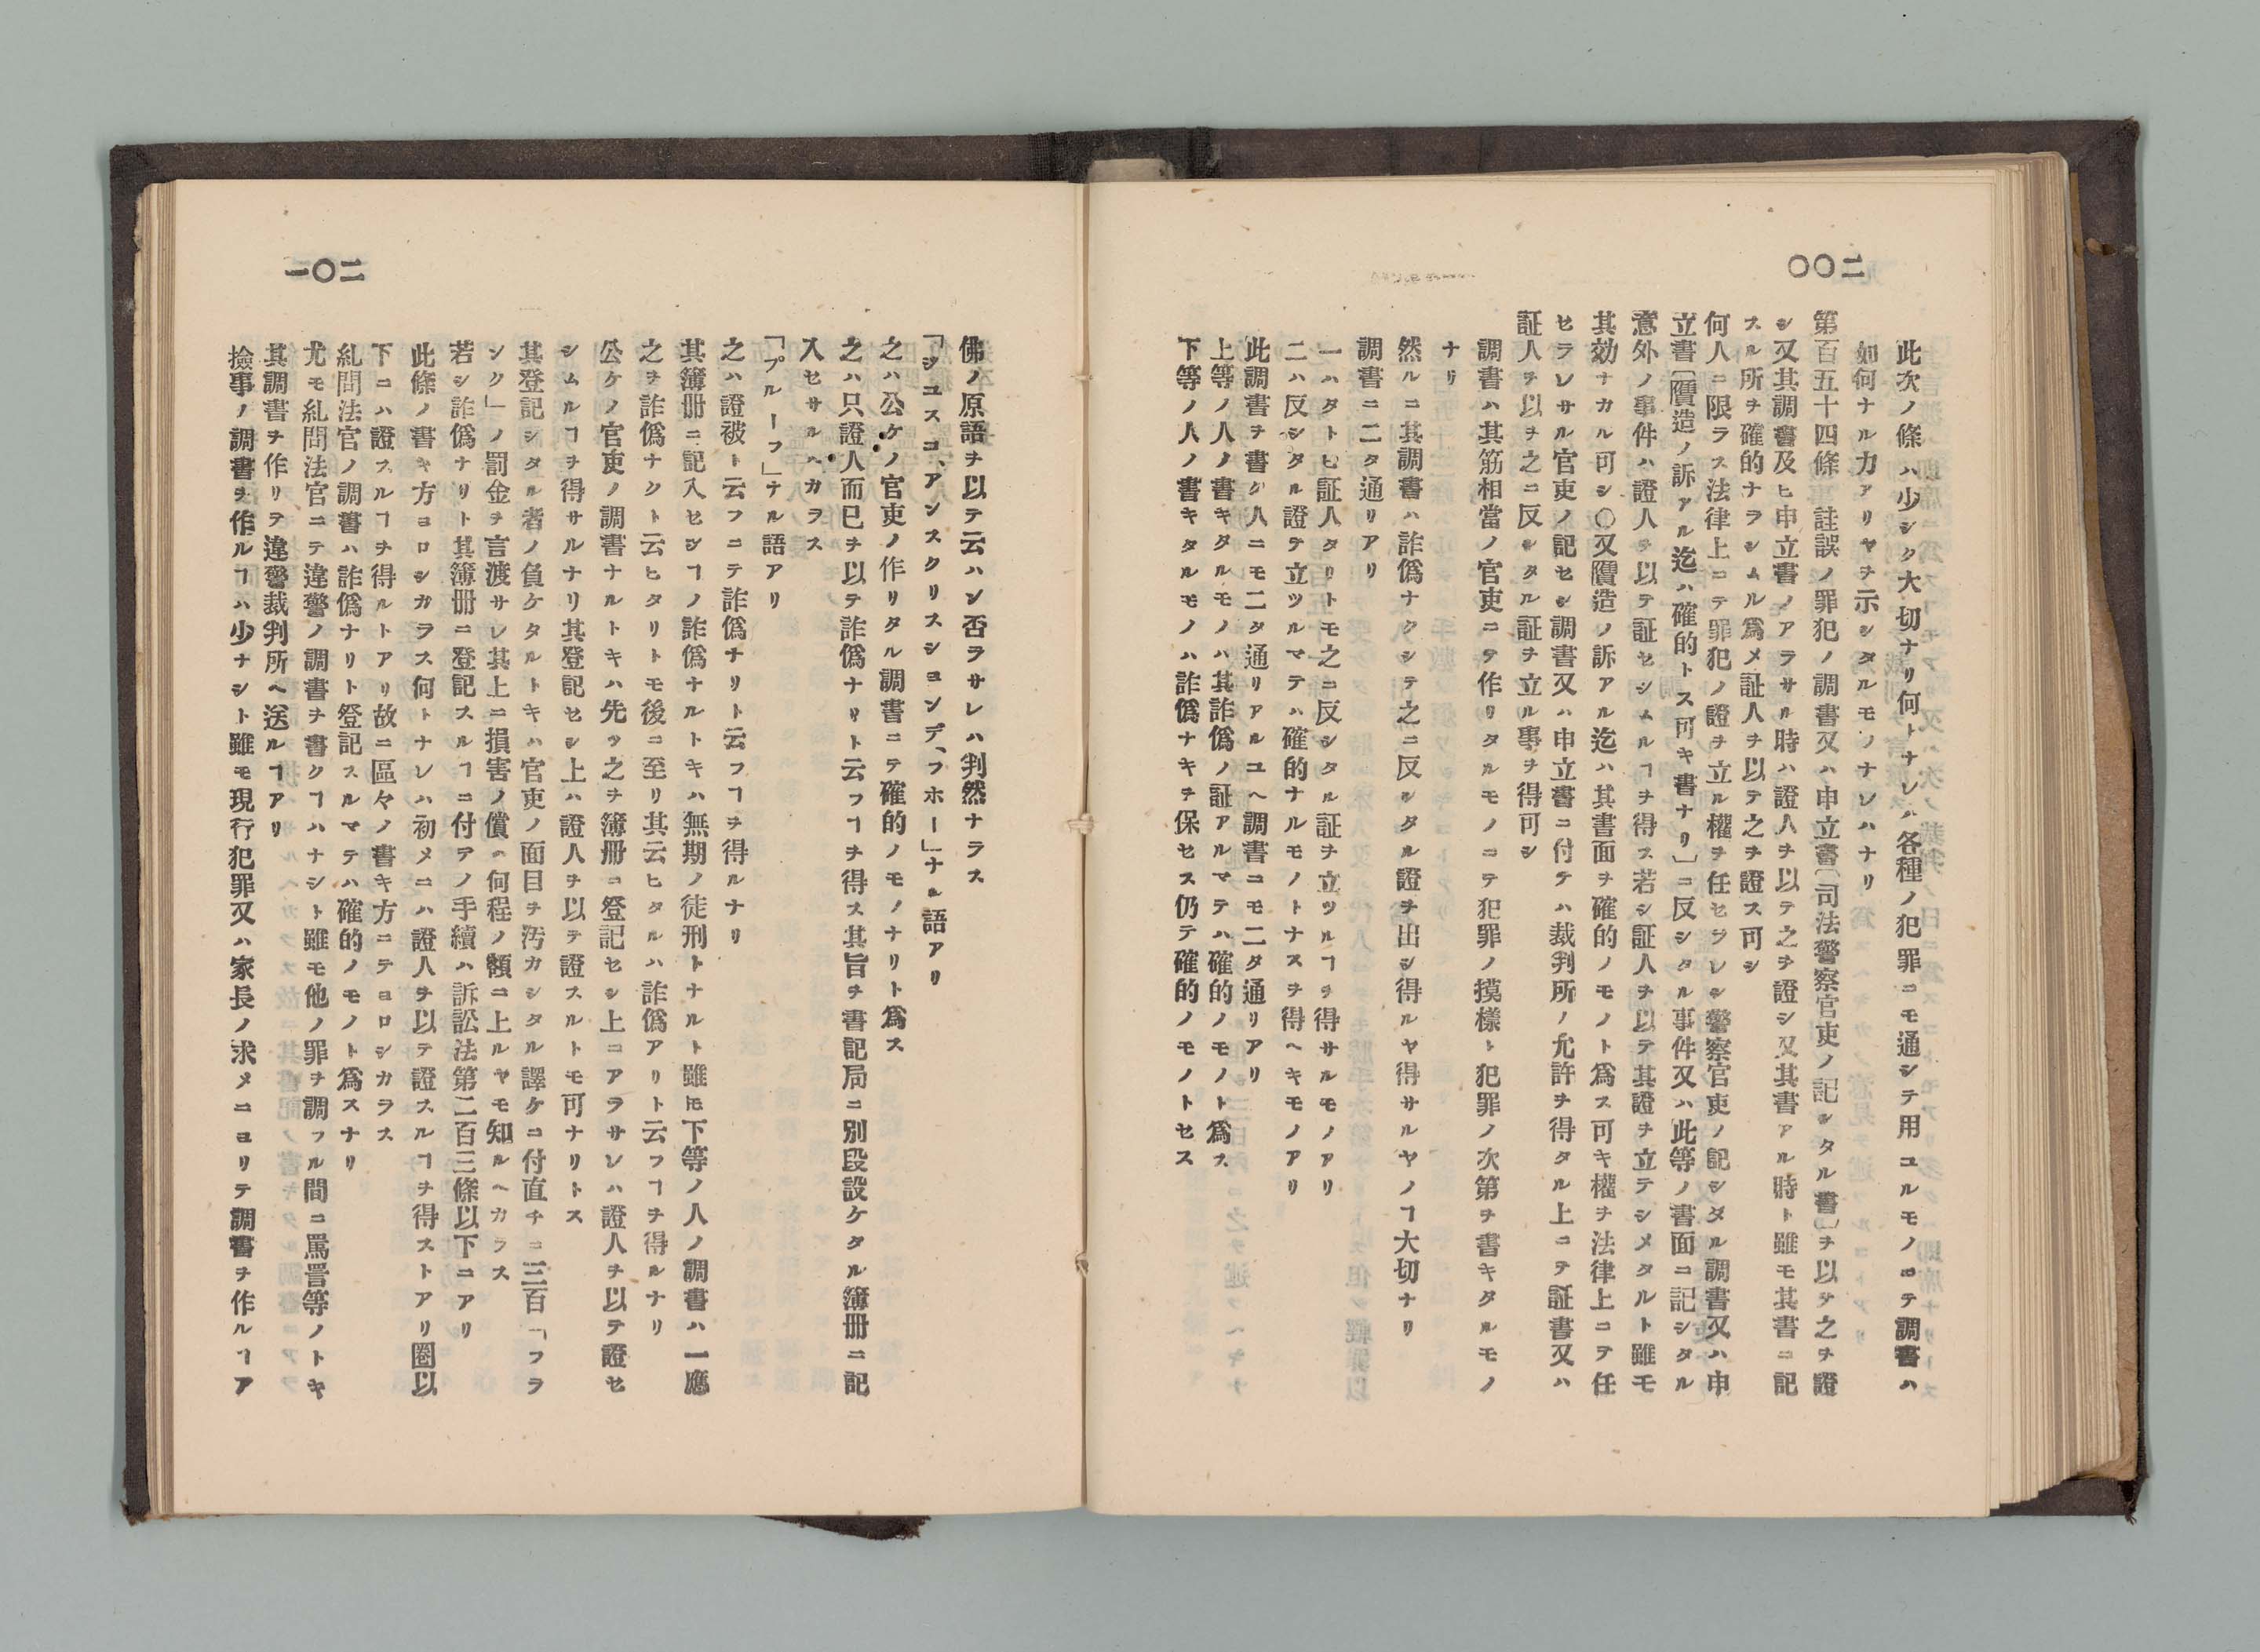 二〇〇
此次ノ條ハ少シク大切ナリ何トナレハ各種ノ犯罪ニモ通シテ用ユルモノニテ調書ハ
如何ナル力アリヤヲ示シタルモノナレハナリ
第百五十四條註誤ノ罪犯ノ調書又ハ申立書〔司法警察官吏ノ記シタル書〕ヲ以テ之ヲ證
シ又其調書及ヒ申立書ノアラサル時ハ證人ヲ以テ之ヲ證シ又其書アル時ト雖モ其書ニ記
スル所ヲ確的ナラシムル爲メ証人ヲ以テ之ヲ證ス可シ
何人ニ限ラス法律上ニテ罪犯ノ證ヲ立ル權ヲ任セラレシ警察官吏ノ記シタル調書又ハ申
立書〔贋造ノ訴アル迄ハ確的トス可キ書ナリ〕ニ反シタル事件又ハ此等ノ書面ニ記シタル
意外ノ事件ハ證人ヲ以テ証セシムルヿヲ得ス若シ証人ヲ以テ其證ヲ立テシメタルト雖モ
其効ナカル可シ〇又贋造ノ訴アル迄ハ其書面ヲ確的ノモノト爲ス可キ權ヲ法律上ニテ任
セラレサル官吏ノ記セシ調書又ハ申立書ニ付テハ裁判所ノ允許ヲ得タル上ニテ証書又ハ
証人ヲ以テ之ニ反シタル証ヲ立ル事ヲ得可シ
調書ハ其筋相當ノ官吏ニテ作リタルモノニテ犯罪ノ摸樣ト犯罪ノ次第ヲ書キタルモノ
ナリ
然ルニ其調書ハ詐僞ナクシテ之ニ反シタル證ヲ出シ得ルヤ得サルヤノヿ大切ナリ
調書ニ二タ通リアリ
一ハタトヒ証人タリトモ之ニ反シタル証ヲ立ツルヿヲ得サルモノアリ
二ハ反シタル證ヲ立ツルマテハ確的ナルモノトナスヲ得ヘキモノアリ
此調書ヲ書ク人ニモ二タ通リアルユヘ調書ニモ二タ通リアリ
上等ノ人ノ書キタルモノハ其詐僞ノ証アルマテハ確的ノモノト爲ス
下等ノ人ノ書キタルモノハ詐僞ナキヲ保セス仍テ確的ノモノトセス
二〇一
佛ノ原語ヲ以テ云ハン否ラサレハ判然ナラス
「ジユスコ、アンスクリスションデ、フホー」ナル語アリ
之ハ公ケノ官吏ノ作リタル調書ニテ確的ノモノナリト爲ス
之ハ只證人而已ヲ以テ詐僞ナリト云フヿヲ得ス其旨ヲ書記局ニ別段設ケタル簿冊ニ記
入セサルヘカラス
「プルーフ」ナル語アリ
之ハ證被ト云フニテ詐僞ナリト云フヿヲ得ルナリ
其簿冊ニ記入セシヿノ詐僞ナルトキハ無期ノ徒刑トナルト雖𪜈下等ノ人ノ調書ハ一應
之ヲ詐僞ナクト云ヒタリトモ後ニ至リ其云ヒタルハ詐僞アリト云フヿヲ得ルナリ
公ケノ官吏ノ調書ナルトキハ先ツ之ヲ簿冊ニ登記セシ上ニアラサレハ證人ヲ以テ證セ
シムルヿヲ得サルナリ其登記セシ上ハ證人ヲ以テ證スルトモ可ナリトス
其登記シタル者ノ負ケタルトキハ官吏ノ面目ヲ汚カシタル譯ケニ付直チニ三百「フラ
ンク」ノ罰金ヲ言渡サレ其上ニ損害ノ償ヒ何程ノ額ニ上ルヤモ知ルヘカラス
若シ詐僞ナリト其簿冊ニ登記スルヿニ付テノ手續ハ訴訟法第二百三條以下ニアリ
此條ノ書キ方ヨロシカラス何トナレハ初メニハ證人ヲ以テ證スルヿヲ得ストアリ圏以
下ニハ證スルヿヲ得ルトアリ故ニ區々ノ書キ方ニテヨロシカラス
糺問法官ノ調書ハ詐僞ナリト登記スルマテハ確的ノモノト爲スナリ
尤モ糺問法官ニテ違警ノ調書ヲ書クヿハナシト雖モ他ノ罪ヲ調フル間ニ罵詈等ノトキ
其調書ヲ作リテ違警裁判所ヘ送ルヿアリ
撿事ノ調書ヲ作ルヿハ少ナシト雖モ現行犯罪又ハ家長ノ求メニヨリテ調書ヲ作ルヿア